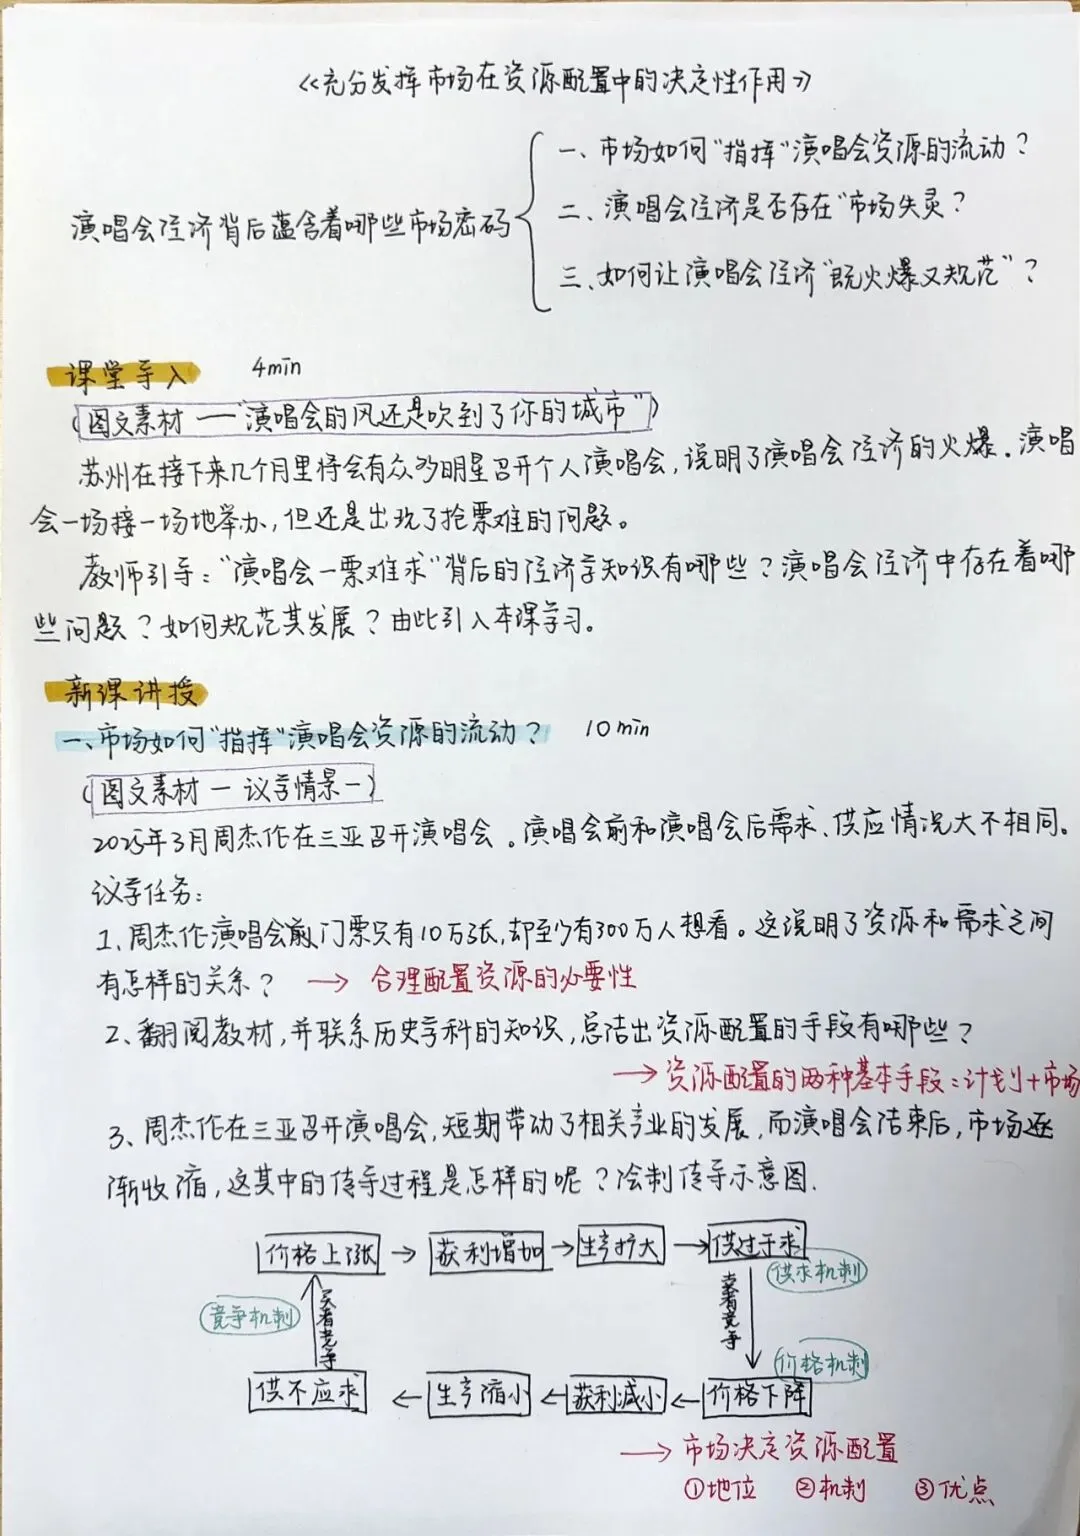 《充分发挥市场在资源配置中的决定性作用》
演唱会经济背后蕴含着哪些市场密码
一、市场如何"指挥"演唱会资源的流动?
二、演唱会经济是否存在"市场失灵?
三、如何让演唱会经济"既火爆又规范"?
课堂导入 4min
(图文素材——"演唱会的风还是吹到了你的城市")
苏州在接下来几个月里将会有众多明星召开个人演唱会,说明了演唱会经济的火爆。演唱
会一场接一场地举办,但还是出现了抢票难的问题。
教师引导:"演唱会一票难求"背后的经济学知识有哪些?演唱会经济中存在着哪
些问题?如何规范其发展?由此引入本课学习。
新课讲授
一、市场如何"指挥"演唱会资源的流动? 10min
(图文素材一议学情景一)
2025年3月周杰伦在三亚召开演唱会。演唱会前和演唱会后需求、供应情况大不相同。
议学任务:
1、周杰伦演唱会前,门票只有10万张,却至少有300万人想看。这说明了资源和需求之间
有怎样的关系? → 合理配置资源的必要性
2、翻阅教材,并联系历史学科的知识,总结出资源配置的手段有哪些?
→资源配置的两种基本手段:计划+市场
3、周杰伦在三亚召开演唱会,短期带动了相关产业的发展,而演唱会结束后,市场逐
渐收缩,这其中的传导过程是怎样的呢?绘制传导示意图.
价格上涨→获利增加→生产扩大→供过于求
供求机制
竞争机制
买者竞争
卖者竞争
价格机制
供不应求←生产缩小←获利减小←价格下降
→市场决定资源配置
①地位 ②机制 ③优点